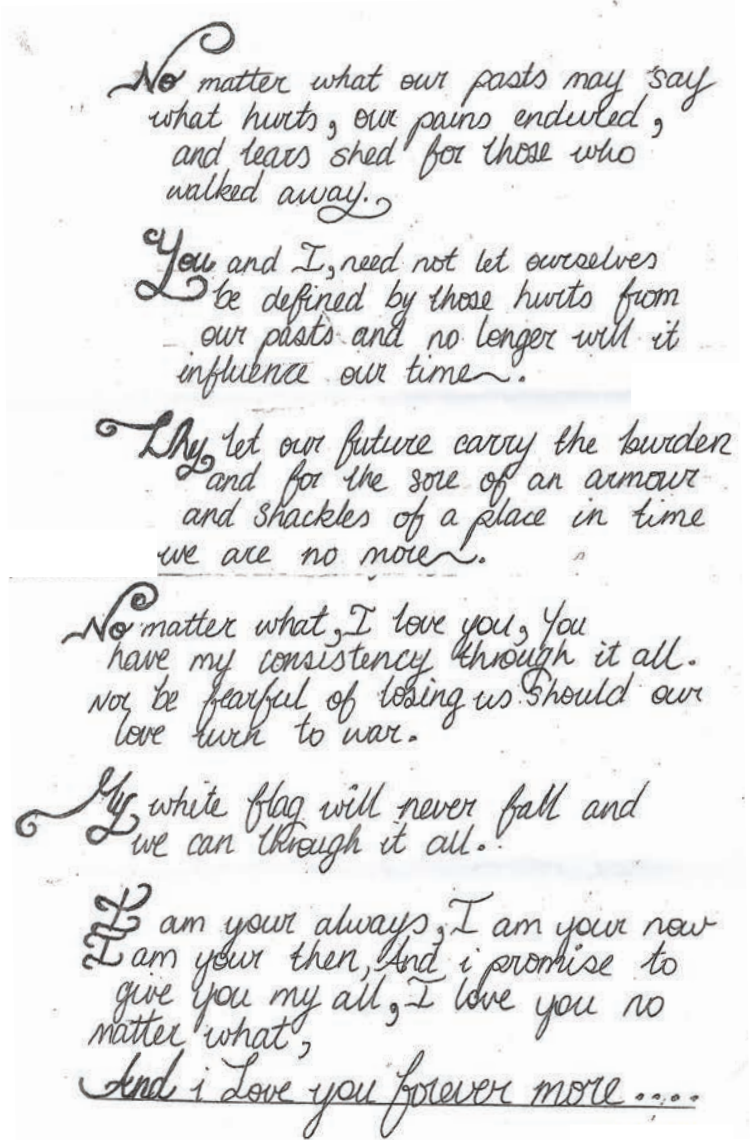 No matter what our pasts may say
what hurts, our pains endured,
and tears shed for those who
walked away.
You and I, need not let ourselves
be defined by those hurts from
our pasts and no longer will it
influence our time~.
Why let our future carry the burden
and for the sore of an armour
and shackles of a place in time
we are no more~.
No matter what, I love you, You
have my consistency through it all.
Nor be fearful of losing us should our
love turn to war.
My white flag will never fall and
we can through it all.
I am your always, I am your now
I am your then, And i promise to
give you my all, I love you no
matter what,
And i Love you forever more.....